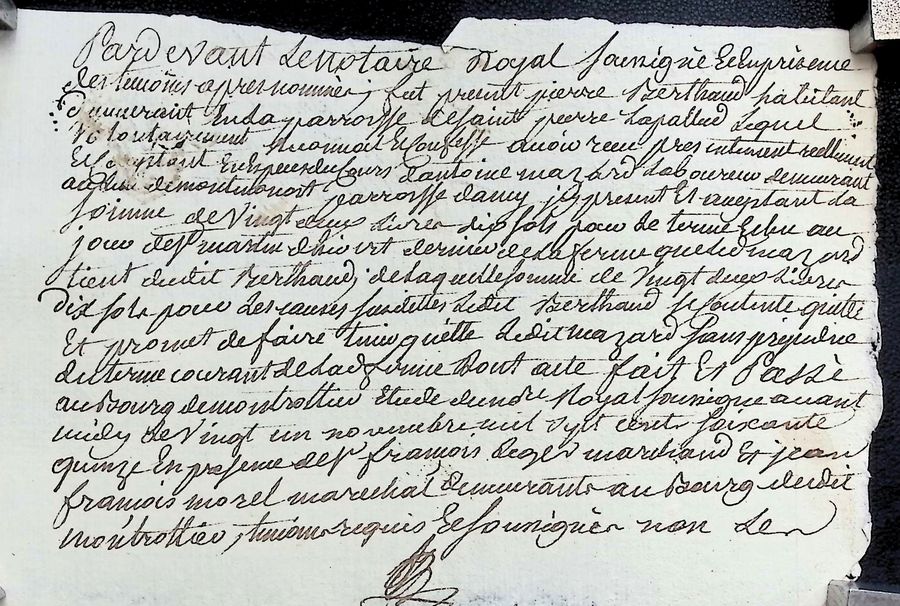 Pardevant Le Notaire Royal Sousigné Et En présence
des temoins apres nommés, fut present pierre Berthaud habitant
demeurant En La parroisse de saint pierre Lapallud Lequel
Volontairement reconnoit Et Confesse avoir reçu presentement reellement
Et Comptant En Especes du Cours d'antoine mazard Laboureur demeurant
au lieu de parroisse d'ancy icy present Et aceptant La
somme de Vingt deux Livres dix sols pour Le terme Echu au
jour de St martin d'hivert dernier de La ferme que Led mazard
tient dudit Berthaud, de Laquelle somme de Vingt deux Livres
dix sols pour Les causes susdittes Ledit Berthaud se Contente quitte
Et promet de faire tenir quitte Ledit mazard sans préjudice
du terme courant de Lad ferme Dont acte fait Et Passé
au Bourg de montrottier Etude dud Royal sousigné avant
midy Le Vingt un novembre mil sept cent soixante
quinze En presence de Sr françois deger marchand Et jean
françois morel marechal demeurants au Bourg dudit
montrottier, temoins requis Et sousignés non Led